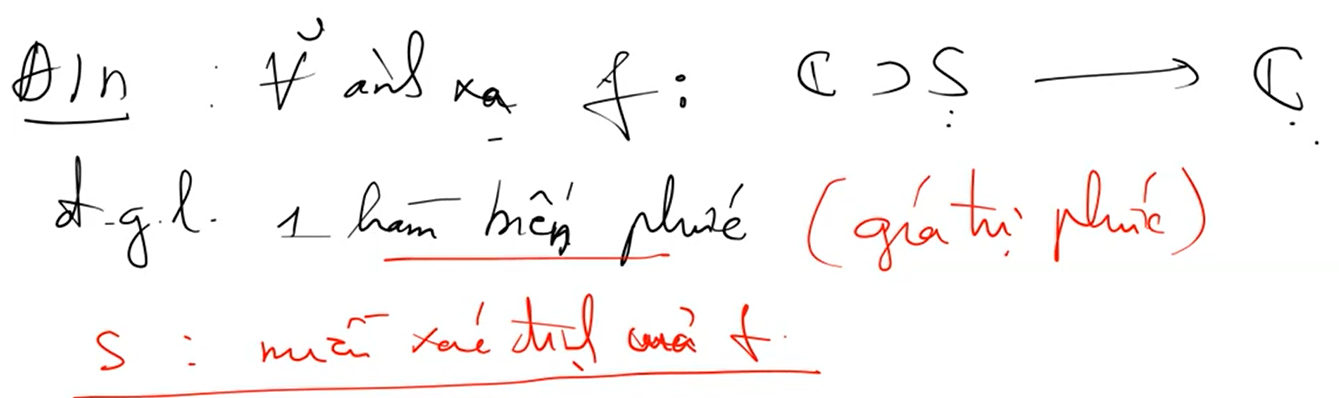 Đ/n : ∀ ánh xạ f: ℂ ⊃ S ⟶ ℂ.
đ.g.l. 1 hàm biến phức (giá trị phức)
S : miền xác định của f.